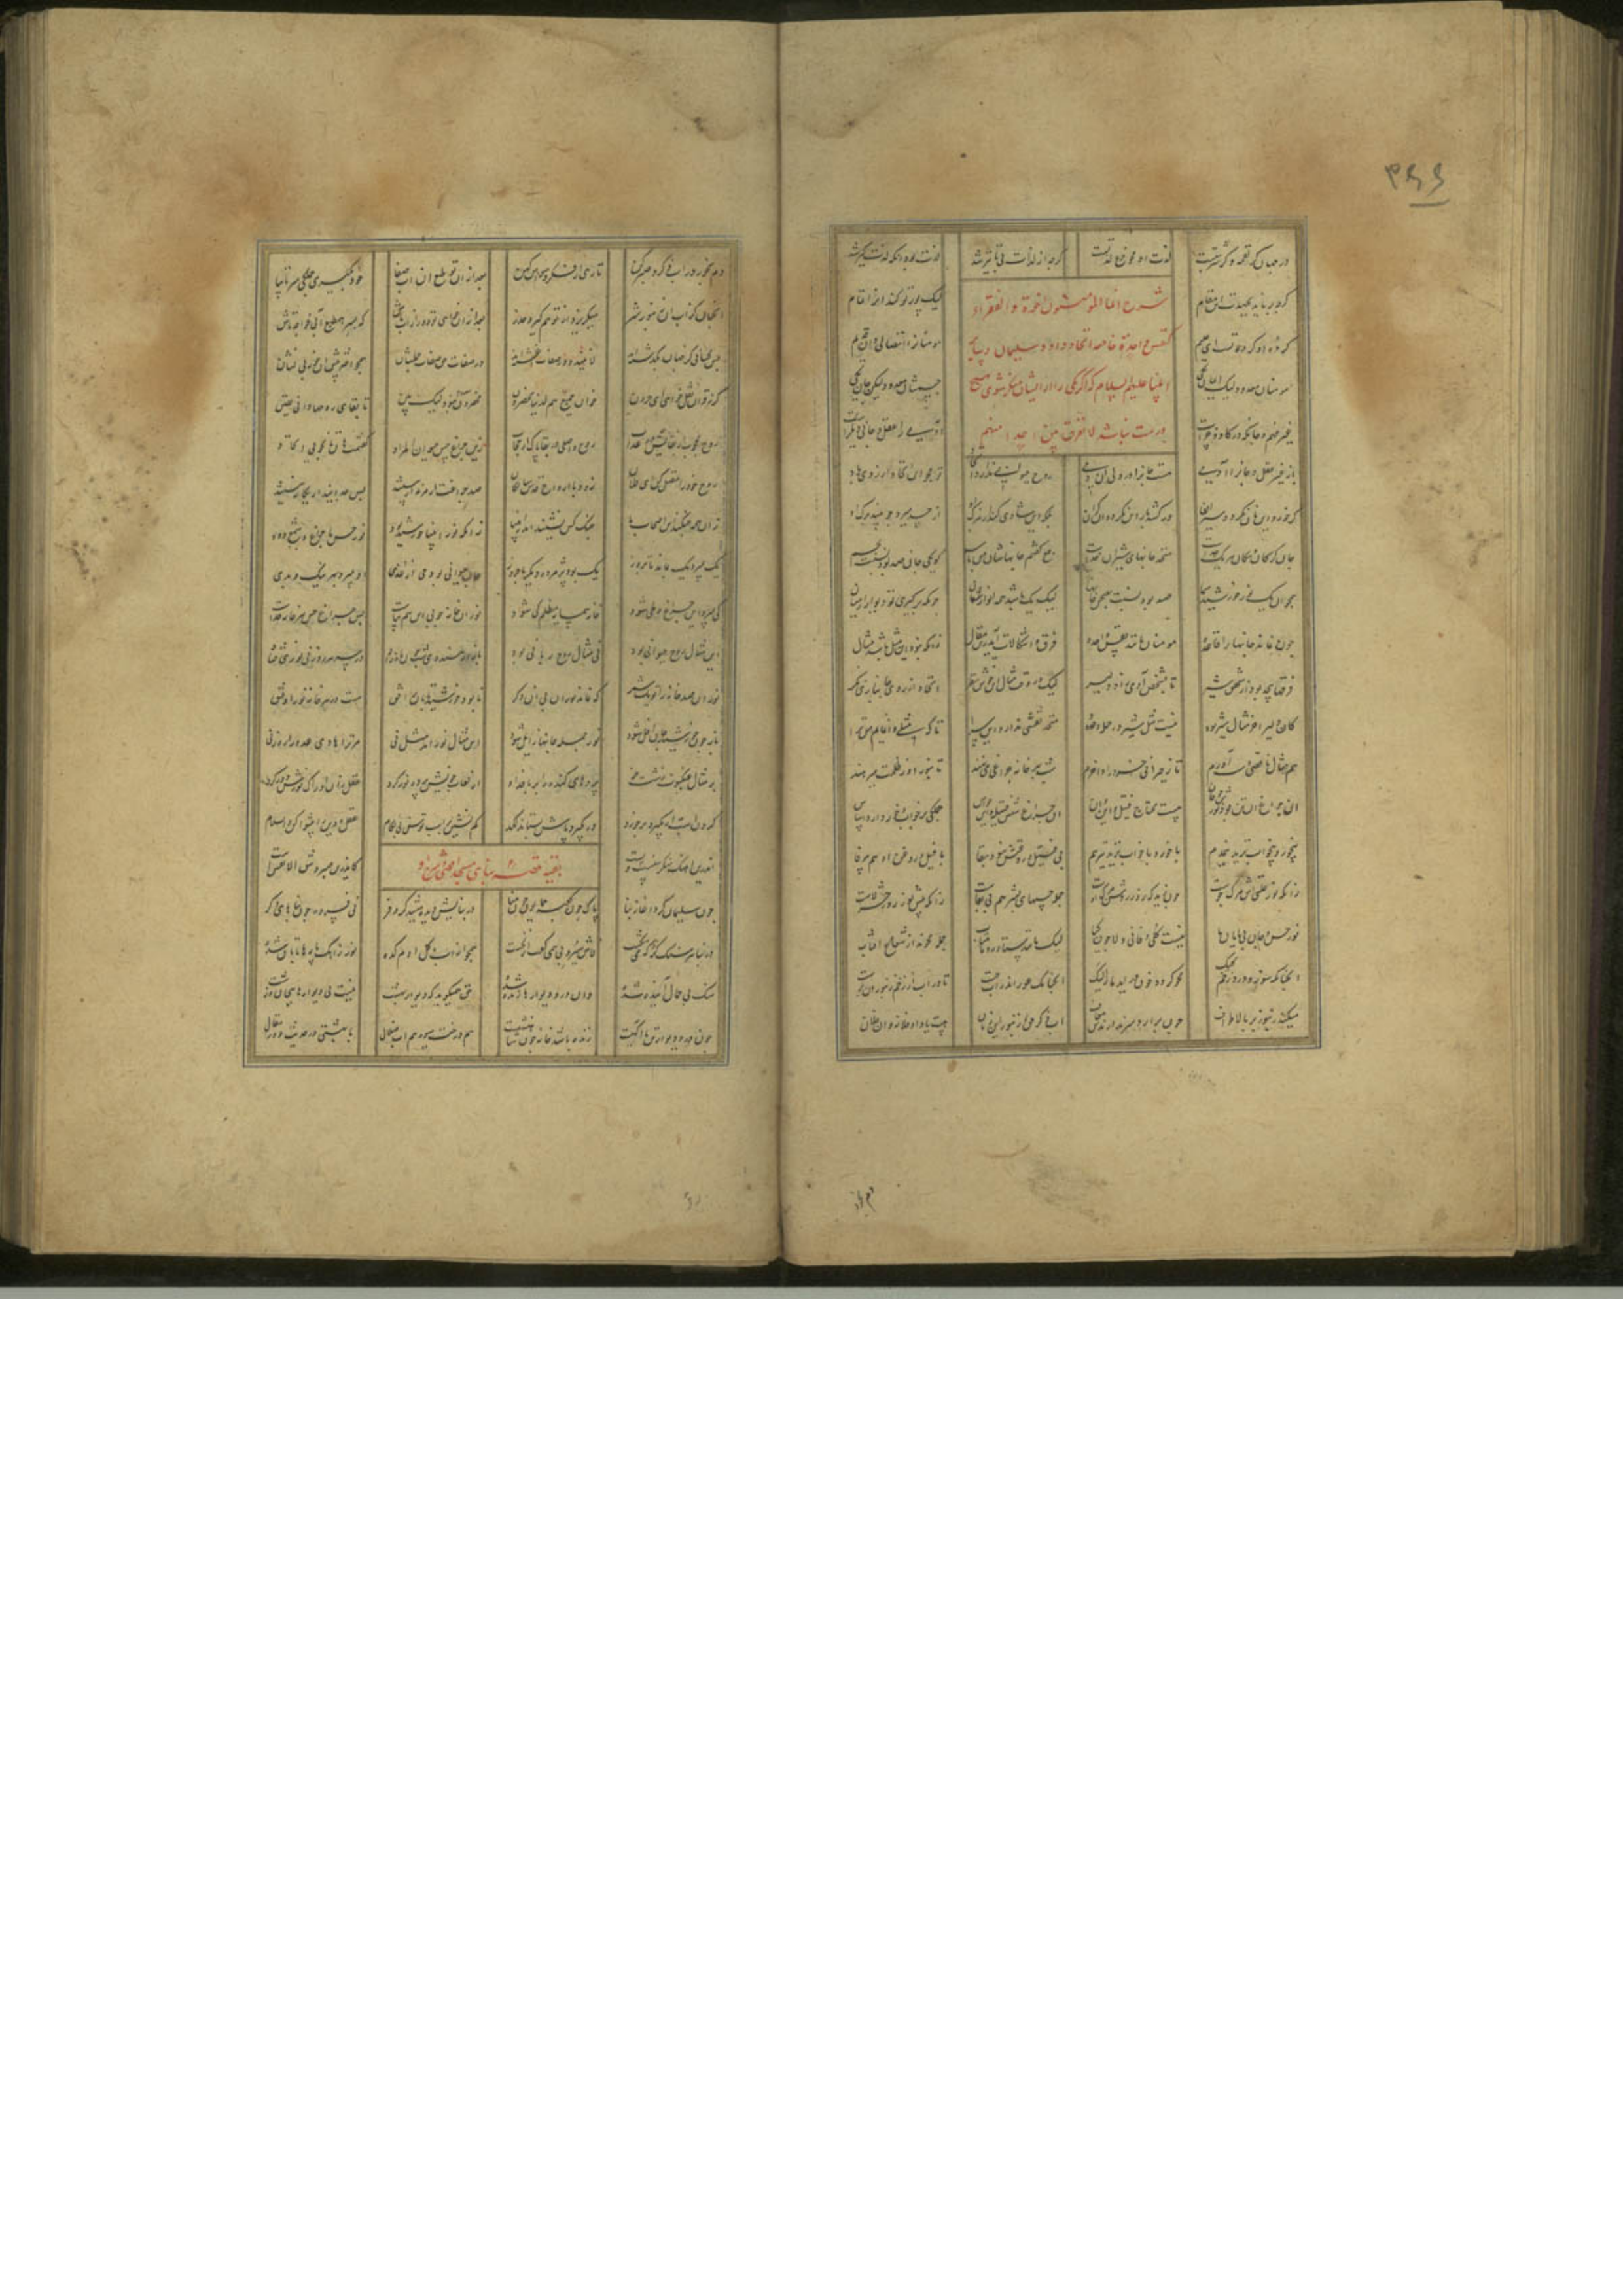 ۳۶۶
در جهان گر لقمه و گر شربتست لذت او فرع محو لذتست گرچه از لذات بی تاثیر شد لذت بود او و لذت گیر شد
شرح انما المؤمنون اخوة و الفقراء
کنفس واحدة خاصه اتحاد داود و سلیمان و سایر
انبیا علیهم السلام که اگر یکی را از ایشان منکر شوی هیچ
درست نباشد لا نفرق بین احد منهم
گرچه بر ناید بجهدت این مقام لیک پور تو کند آنرا تمام
کرده او کرده تست ای حکیم مومنان را اتصالی دان قدیم
مومنان معدود لیک ایمان یکی جسمشان معدود لیکن جان یکی
غیر فهم و جانکه در گاو و خرست آدمی را عقل و جانی دیگرست
باز غیر عقل و جان آدمی هست جانی در ولی آن دمی روح حیوانی ندارد اتحاد تو مجو این اتحاد از روح باد
گر خورد این نان نگردد سیر آن ور کشد بار این نگردد آن گران بلکه این شادی کند از مرگ او از حسد میرد چو بیند برگ او
جان گرگان و سگان هر یک جداست متحد جانهای شیران خداست جمع گفتم جانهاشان من باسم کان یکی جان صد بود نسبت بجسم
همچو آن یک نور خورشید سما صد بود نسبت بصحن خانها لیک یک باشد همه انوارشان چونکه برگیری تو دیوار از میان
چون نماند خانها را قاعده مومنان مانند نفس واحده فرق و اشکالات آید زین مقال زانکه نبود این مثل باشد مثال
فرقها بیحد بود از شخص شیر تا بشخص آدمی زاد دلیر لیک در وقت مثال ای خوش نظر اتحاد از روی جانبازی نگر
کان دلیر آخر مثال شیر بود نیست مثل شیر در جمله حدود متحد نقشی ندارد این سرا تا که مثلی وا نمایم مر ترا
هم مثال ناقصی دست آورم تا ز حیرانی خرد را وا خرم شب بهر خانه چراغی می نهند تا بنور او ز ظلمت میرهند
آن چراغ این تن بود نورش چو جان هست محتاج فتیل و این و آن آن چراغ شش فتیله این حواس جملگی بر خواب و خور دارد اساس
بیخور و بیخواب نزید نیم دم با خور و با خواب نزید نیز هم بی فتیل و روغنش نبود بقا با فتیل و روغن او هم بی وفا
زانکه نور علتیش مرگ جوست چون زید که روز روشن مرگ اوست جمله حسهای بشر هم بی بقاست زانکه پیش نور روز حشر لاست
نور حس و جان بی پایان ما نیست کلی فانی و لا چون گیا لیک مانند ستاره و ماهتاب جمله محوند از شعاع آفتاب
آنچنانکه سوز و درد زخم کیک محو گردد چون در آید مار الیک آنچنانک عور اندر آب جست تا در آب از زخم زنبوران برست
میکند زنبور بر بالا طواف چون بر آرد سر ندارندش معاف آب ذکر حق و زنبور این زمان هست یاد آن فلانه و آن فلان
دم بخور در آب ذکر و صبر کن تا رهی از فکر و وسواس کهن بعد از آن تو طبع آن آب صفا خود بگیری جملگی سر تا بپا
آنچنان کز آب آن زنبور شر میگریزد از تو هم گیرد حذر بعد از آن خواهی تو دور از آب باش که بسر هم طبع آبی خواجه تاش
پس کسانی کز جهان بگذشته اند لا نیند و در صفات آغشته اند در صفات حق صفات جمله شان همچو اختر پیش آن خور بی نشان
گر ز قرآن نقل خواهی ای حرون خوان جمیع هم لدینا محضرون محضرون معدوم نبود نیک بین تا بقای روحها دانی یقین
روح محجوب از بقا بس در عذاب روح واصل در بقا پاک از حجاب زین چراغ حس حیوان المراد گفتمت هان تا نجویی اتحاد
روح خود را متصل کن ای فلان زود با ارواح قدس سالکان صد چراغت ار مرند ار بیستند پس جدایند و یگانه نیستند
زان همه جنگند این اصحاب ما جنگ کس نشنید اندر انبیا زانکه نور انبیا خورشید بود نور حس ما چراغ و شمع و دود
یک بمیرد یک بماند تا بروز یک بود پژمرده دیگر با فروز جان حیوانی بود حی از غذی او بمیرد هم بهر نیک و بدی
گر بمیرد این چراغ و طی شود خانه همسایه مظلم کی شود نور آن خانه چو بی این هم بپاست پس چراغ حس هر خانه جداست
این مثال روح حیوانی بود نی مثال روح ربانی بود باز از هندوی شب چون ماه زاد در سر هر روزنی نوری فتاد
نور آن صد خانه را تو یک شمر که نماند نور آن بی آن دگر تا بود خورشید تابان بر افق هست در هر خانه نور او قنق
باز چون خورشید جان آفل شود نور جمله خانها زایل شود این مثال نور آمد مثل نی مر ترا هادی عدو را ره زنی
بر مثال عنکبوت آن زشت خو پردهای گنده را بر بافد او از لعاب خویش پرده نور کرد
گردن اسب ار بگیرد بر خورد ور بگیرد پاش بستاند لگد کم نشین بر اسب توسن بی لگام عقل و دین را پیشوا کن والسلام
اندرین آهنگ منگر سست و پست کاندرین ره صبر و شق الانفس است
بقیه قصه بنای مسجد اقصی
چون سلیمان کرد آغاز بنا پاک چون کعبه همایون چون منا در بنایش دیده میشد کر و فر نی فسرده چون بناهای دگر
در بنا هر سنگ کز که می شکست فاش سیروا بی همی گفت از نخست همچو از آب و گل آدم کده نور ز آهک پارها تابان شده
سنگ بی حمال آینده شده وان در و دیوارها زنده شده حق همیگوید که دیوار بهشت نیست چون دیوارها بیجان و زشت
چون در و دیوار تن با آگهیست زنده باشد خانه چون شاهنشهیست هم درخت و میوه هم آب زلال با بهشتی در حدیث و در مقال